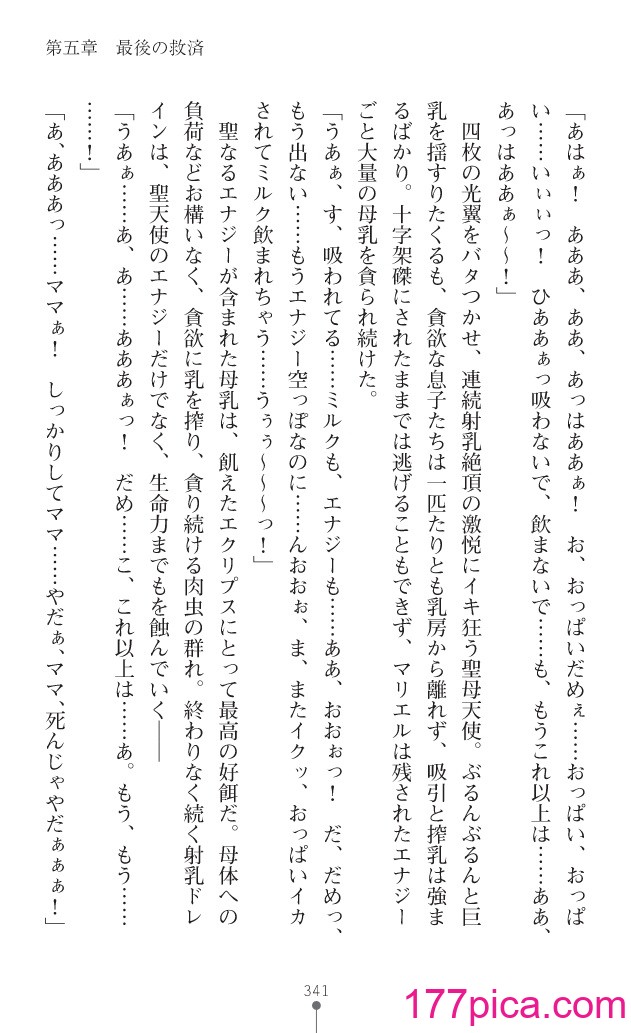 第五章　最後の救済
「あはぁ！　あああ、ああ、あっはああぁ！　お、おっぱいだめぇ……おっぱい、おっぱ
い……いぃぃっ！　ひああぁっ吸わないで、飲まないで……も、もうこれ以上は……ああ、
あっはああぁ～～！」
　四枚の光翼をバタつかせ、連続射乳絶頂の激悦にイキ狂う聖母天使。ぶるんぶるんと巨
乳を揺すりたくるも、貪欲な息子たちは一匹たりとも乳房から離れず、吸引と搾乳は強ま
るばかり。十字架磔にされたままでは逃げることもできず、マリエルは残されたエナジー
ごと大量の母乳を貪られ続けた。
「うあぁ、す、吸われてる……ミルクも、エナジーも……ああ、おおぉっ！　だ、だめっ、
もう出ない……もうエナジー空っぽなのに……んおおぉ、ま、またイクッ、おっぱいイカ
されてミルク飲まれちゃう……うぅぅ～～～っ！」
　聖なるエナジーが含まれた母乳は、飢えたエクリプスにとって最高の好餌だ。母体への
負荷などお構いなく、貪欲に乳を搾り、貪り続ける肉虫の群れ。終わりなく続く射乳ドレ
インは、聖天使のエナジーだけでなく、生命力までもを蝕んでいく――
「うあぁ……あ、あ……あああぁっ！　だめ……こ、これ以上は……あ。もう、もう……
……！」
「あ、あああっ……ママぁ！　しっかりしてママ……やだぁ、ママ、死んじゃやだぁぁぁ！」
341
177pica.com